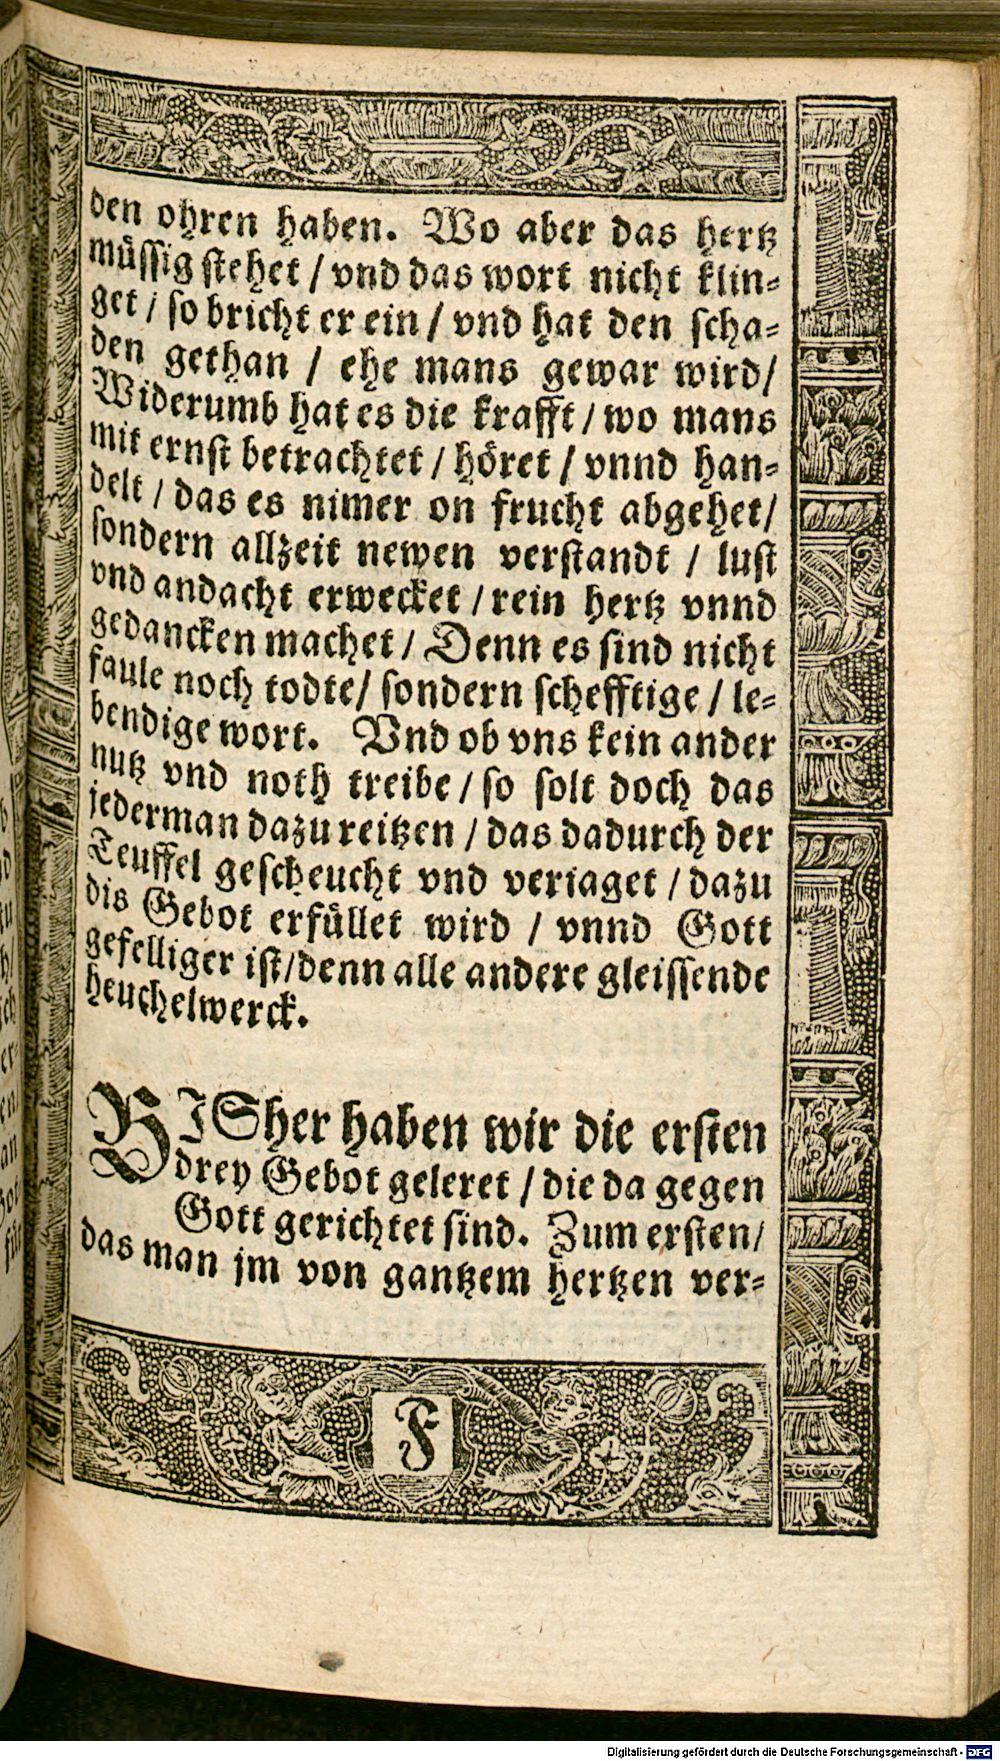 den ohren haben. Wo aber das hertz
müssig stehet / vnd das wort nicht klin⸗
get / so bricht er ein / vnd hat den scha⸗
den gethan / ehe mans gewar wird/
Widerumb hat es die krafft / wo mans
mit ernst betrachtet / höret / vnnd han⸗
delt / das es nimer on frucht abgehet/
sondern allzeit newen verstandt / lust
vnd andacht erwecket / rein hertz vnnd
gedancken machet / Denn es sind nicht
faule noch todte/ sondern schefftige / le⸗
bendige wort. Vnd ob vns kein ander
nutz vnd noth treibe / so solt doch das
jederman dazu reitzen / das dadurch der
Teuffel gescheucht vnd veriaget / dazu
dis Gebot erfüllet wird / vnnd Gott
gefelliger ist/denn alle andere gleissende
heuchelwerck.
BISher haben wir die ersten
drey Gebot geleret / die da gegen
Gott gerichtet sind. Zum ersten/
das man jm von gantzem hertzen ver⸗
F
Digitalisierung gefördert durch die Deutsche Forschungsgemeinschaft - DFG